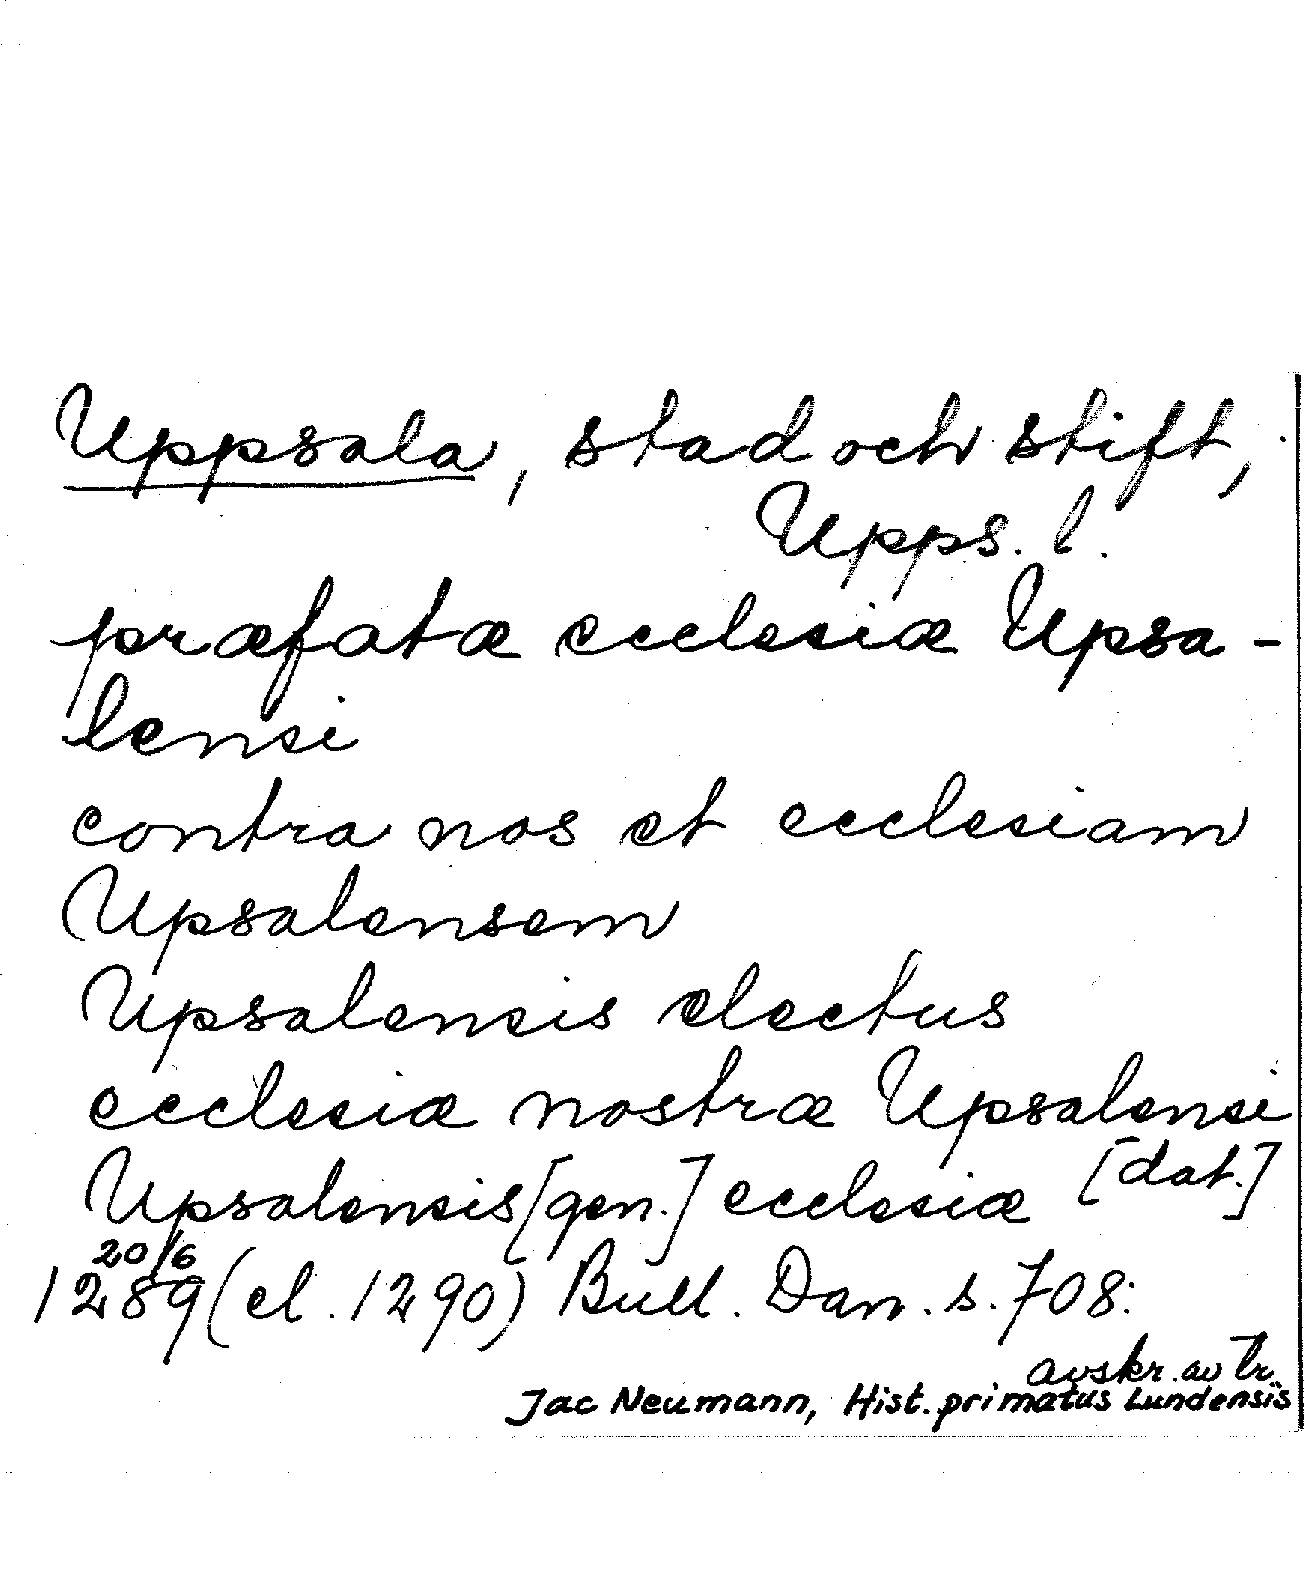 Uppsala, stad och stift,
Upps. l.
præfatæ ecclesiæ Upsa-
lensi
contra nos et ecclesiam
Upsalensem
Upsalensis electus
ecclesiæ nostræ Upsalensi
[dat.]
Upsalensis [gen.] ecclesiæ
20/6
1289 (el. 1290) Bull. Dan. s. 708:
avskr. av tr.
Jac Neumann, Hist. primatus Lundensis